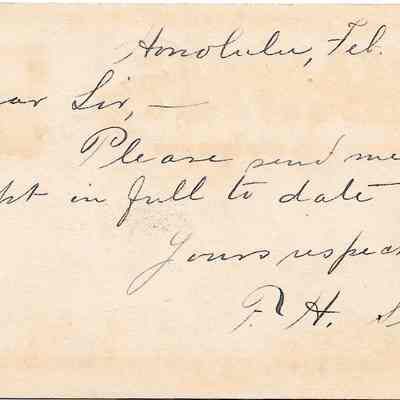 Honolulu, Feb.
ar Sir, —
Please send me
pt in full to date
Yours respec
F. H. S